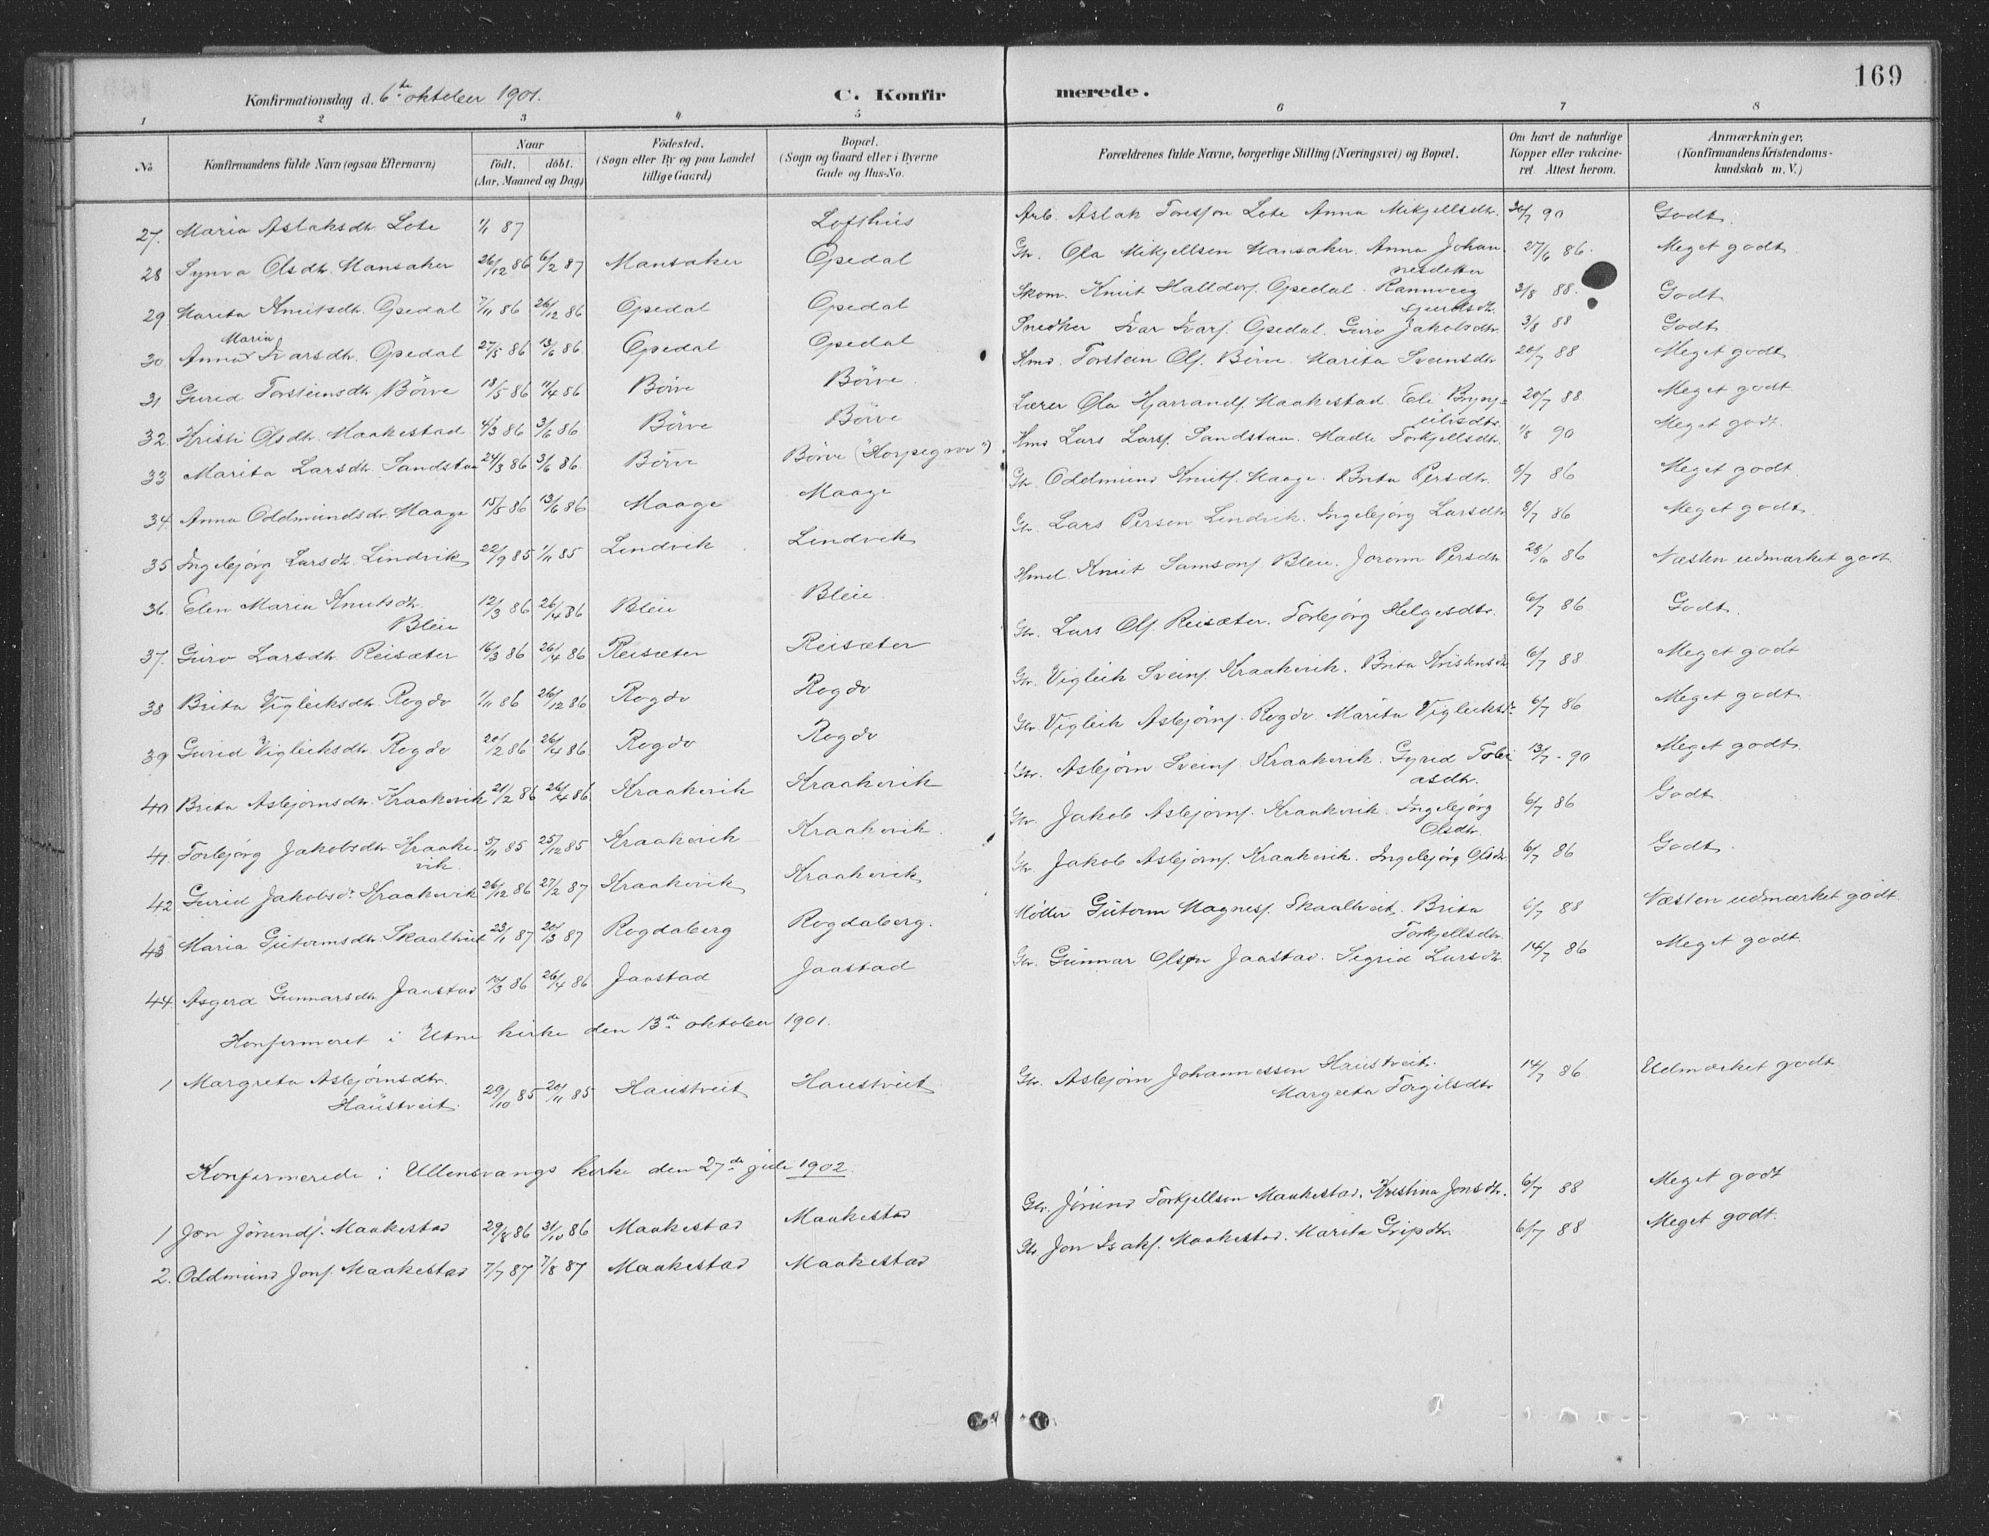 169
Konfirmationsdag d. 6te oktober 1901. C. Konfirmerede.
1 2 3 4 5 6 7 8
No. Konfirmandens fulde Navn (ogsaa Efternavn) Naar födt. döbt. (Aar, Maaned og Dag) Födested. (Sogn eller By og paa Landet tillige Gaard) Bopæl. (Sogn og Gaard eller i Byerne Gade og Hus-No. Forældrenes fulde Navne, borgerlige Stilling (Næringsvei) og Bopæl. Om havt de naturlige Kopper eller vakcineret. Attest herom. Anmærkninger, (Konfirmandens Kristendomskundskab m. V.)
27. Maria Aslaksdtr. Lote 1/1 87 Lofthus Arb. Aslak Toresson Lote Anna Mikjellsdtr. 30/7 90 Godt.
28 Synva Olsdtr. Mansaker 26/12 86 6/2 87 Mansaker Opedal Gbr. Ola Mikjellsen Mansaker. Anna Johannesdotter 27/6 86. Meget godt.
29 Marita Knutsdtr. Opedal 7/11 86 26/12 86 Opedal Opedal Skom. Knut Halldors. Opedal. Rannveig Sjurdsdtr. 3/8 88. Godt
30 Anna Maria Ivarsdtr. Opedal 27/5 86 13/6 86 Opedal Opedal Snedker Ivar Ivars. Opedal. Guro Jakobsdtr. 3/8 88 Godt
31 Gurid Torsteinsdtr. Börve 18/5 86 11/4 86 Börve Börve. Hmd. Torstein Ols. Börve. Marita Sveinsdtr 20/7 88 Meget godt
32. Kristi Olsdtr. Maakestad 4/3 86 3/6 86 Börve Börve Lærer Ola Hjarrands. Maakestad. Eli Brynjulvsdtr. 20/7 88. Meget godt
33 Marita Larsdtr. Sandstaa 24/3 86 3/6 86 Börve Börve (Korpegrov") Hmd Lars Lars. Sandstaa. Madte Torkjellsdtr. 1/8 90 Meget godt.
34. Anna Oddmundsdtr. Maage 15/5 86 13/6 86 Maage Maage Gbr. Oddmund Knuts. Maage. Brita Persdtr. 8/7 86 Meget godt.
35 Ingebjörg Larsdtr. Lindvik 22/9 85 1/11 85 Lindvik Lindvik Gbr. Lars Person Lindvik. Ingebjörg Larsdtr 8/7 86 Meget godt.
36 Elen Maria Knutsdtr. Bleie 12/3 86 26/4 86 Bleie Bleie. Hmd. Knut Samsons. Bleie. Joronn Persdtr 28/6 86 Næsten udmærket godt
37. Guro Larsdtr. Reisæter 16/3 86 26/4 86 Reisæter Reisæter Gbr. Lars Ols. Reisæter. Torbjörg Helgesdtr. 6/7 86 Godt.
38 Brita Vigleiksdtr. Rogdo 1/11 86 26/12 86 Rogdo Rogdo Gbr. Vigleik Sveins. Kraakevik. Brita Kristensdtr 6/7 88 Meget godt
39 Gurid Vigleiksdtr. Rogdo 20/2 86 26/4 86 Rogdo Rogdo Gbr. Vigleik Asbjörns. Rogdo. Marita Vigleiksdr 6/7 86 Meget godt.
40 Brita Asbjörnsdtr. Kraakevik 21/2 86 26/4 86 Kraakevik Kraakevik Gbr. Asbjörn Sveins. Kraakevik. Gyrid Tobiasdtr. 13/7 - 90 Meget godt.
41. Torbjörg Jakobsdtr. Kraakevik. 5/11 85 25/12 85 Kraakevik Kraakevik. Gbr. Jakob Asbjörns. Kraakevik. Ingebjörg Olsdtr. 6/7 86 Godt
42 Gurid Jakobsdr. Kraakevik 26/12 86 27/2 87 Kraakevik Kraakevik Gbr. Jakob Asbjörns. Kraakevik. Ingebjörg Olsdtr 6/7 86 Godt.
43 Maria Gutormsdtr. Skaaltveit 23/1 87 20/3 87 Rogdaberg Rogdaberg. Möller Gutorm Magnes. Skaaltveit. Brita Torkjellsdtr. 6/7 88 Næsten udmærket godt.
44. Asgerd Gunnarsdtr. Jaastad 17/3 86 26/4 86 Jaastad Jaastad Gbr. Gunnar Olson Jaastad. Sigrid Larsdtr. 14/7 86 Meget godt.
Konfirmeret i Utne kirke den 13de oktober 1901.
1 Margreta Asbjörnsdtr. Haustveit. 29/10 85 20/11 85 Haustveit Haustveit Gbr. Asbjörn Johannessen Haustveit. Margreta Torgilsdtr 14/7 86. Udmærket godt
Konfirmerede i Ullensvangs kirke den 27de juli 1902.
1 Jon Jörunds. Maakestad 29/8 86 31/10 86 Maakestad Maakestad Gbr. Jörund Torkjellsen Maakestad. Kristina Jonsdtr. 6/7 88 Meget godt
2. Oddmund Jons. Maakestad 7/7 87 7/8 87 Maakestad Maakestad Gbr Jon Isaks. Maakestad. Marita Gripsdtr. 6/7 88 Meget godt.